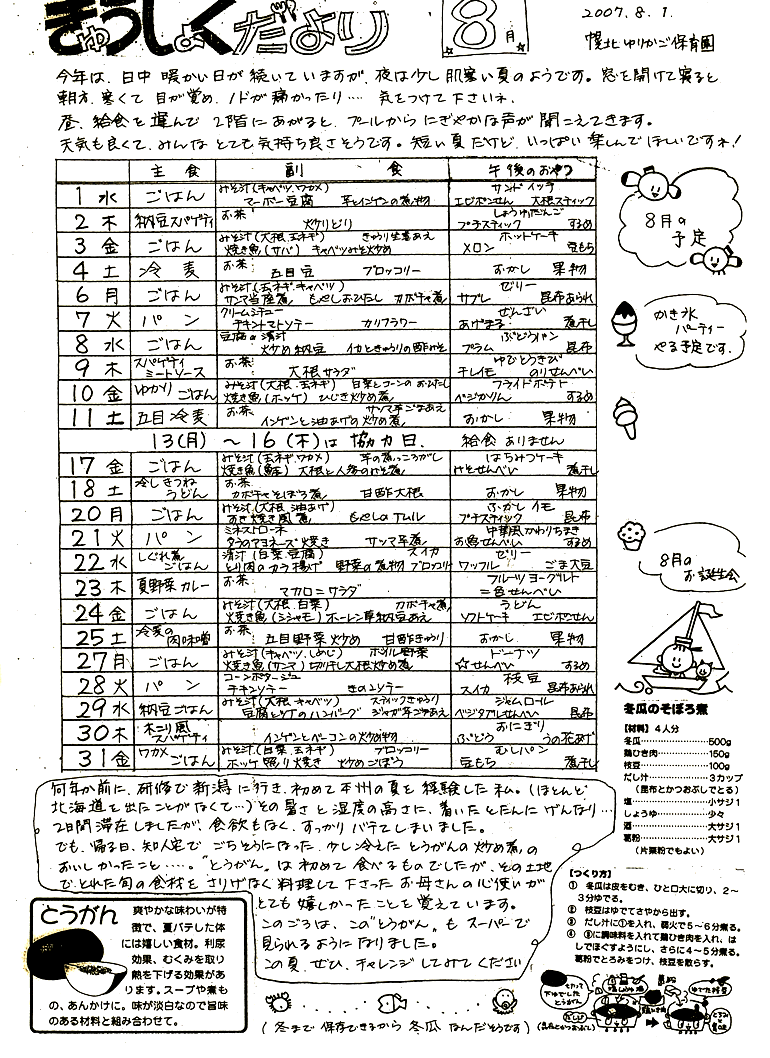 きゅうしょくだより
8月
2007.8.1.
幌北ゆりかご保育園
今年は、日中 暖かい日が 続いていますが、夜は少し 肌寒い夏のようです。窓を開けて寝ると
朝方、寒くて 目が覚め、ノドが痛かったり…… 気をつけて下さいネ。
昼、給食を運んで 2階にあがると、プールから にぎやかな声が 聞こえてきます。
天気も良くて、みんな とても気持ち良さそうです。短い夏だけど、いっぱい 楽しんでほしいですネ!
主食 副食 午後のおやつ
1 水 ごはん みそ汁(キャベツ、ワカメ) マーボー豆腐 平インゲンの煮物 サンドイッチ エビポンせん 大根スティック
2 木 納豆スパゲティ お茶 炒りどり しょうゆだんご プチスティック するめ
3 金 ごはん みそ汁(大根、玉ネギ) きゅうり生姜あえ 焼き魚(サバ) キャベツみそ炒め ホットケーキ メロン 豆もち
4 土 冷麦 お茶 五目豆 ブロッコリー おかし 果物
6 月 ごはん みそ汁(玉ネギ、キャベツ) サンマ生姜煮 もやしおひたし カボチャ煮 ゼリー サブレ 昆布あられ
7 火 パン クリームシチュー チキントマトソテー カリフラワー ぜんざい 煮干し
8 水 ごはん 豆腐の清汁 炒め納豆 イカときゅうりの酢みそ ぶどうパン プラム 昆布
9 木 スパゲティミートソース お茶 大根サラダ ゆでとうきび のりせんべい
10 金 ゆかりごはん みそ汁(大根、玉ネギ) 白菜とコーンのおひたし 焼き魚(ホッケ) ひじき炒め煮 フライドポテト ベジかりん するめ
11 土 五目冷麦 お茶 サツマ芋ごまあえ インゲンと油あげの炒め煮 おかし 果物
13(月) ~ 16(木)は 協力日、 給食 ありません
17 金 ごはん みそ汁(玉ネギ、ワカメ) 芋の煮っころがし 焼き魚(鮭) 大根と人参のみそ煮 はちみつケーキ みそせんべい 煮干し
18 土 冷しきつねうどん お茶 カボチャそぼろ煮 甘酢大根 おかし 果物
20 月 ごはん みそ汁(大根、油あげ) お好き焼き風煮 もやしのナムル ふかしイモ プチスティック 昆布
21 火 パン ミネストローネ タラのマヨネーズ焼き サツマ芋煮 中華風かわりちまき お魚せんべい するめ
22 水 しぐれ煮ごはん 清汁(白菜、豆腐) スイカ とり肉のカラ揚げ 野菜の煮物 ブロッコリー ゼリー ワッフル ごま大豆
23 木 夏野菜カレー お茶 マカロニサラダ フルーツヨーグルト 二色せんべい
24 金 ごはん みそ汁(大根、白菜) カボチャ煮 焼き魚(シシャモ) ホーレン草納豆あえ うどん ソフトケーキ エビポンせん
25 土 冷麦の肉味噌 お茶 五目野菜炒め 甘酢きゅうり おかし 果物
27 月 ごはん みそ汁(キャベツ、しめじ) ボイル野菜 焼き魚(サンマ) 切り干し大根炒め煮 ドーナツ ☆せんべい するめ
28 火 パン コーンポタージュ チキンソテー きのこソテー 枝豆 スイカ 昆布あられ
29 水 納豆ごはん みそ汁(大根、キャベツ) スティックきゅうり 豆腐とツナのハンバーグ ジャガ芋ごまあえ ジャムロール ベジタブルせんべい 昆布
30 木 木こり風スパゲティ インゲンとベーコンの炒め物 おにぎり ぶどう うの花あげ
31 金 ワカメごはん みそ汁(白菜、玉ネギ) ブロッコリー ホッケ照り焼き 炒めごぼう むしパン 豆もち 煮干し
8月の予定
かき氷
パーティー
やる予定です。
8月の
お誕生会
冬瓜のそぼろ煮
【材料】4人分
冬瓜 500g
鶏ひき肉 150g
枝豆 100g
だし汁 3カップ
(昆布とかつおぶしでとる)
塩 小サジ1
しょうゆ 少々
酒 大サジ1
葛粉 大サジ1
(片栗粉でもよい)
【つくり方】
① 冬瓜は皮をむき、ひと口大に切り、2~
3分ゆでる。
② 枝豆はゆでてさやから出す。
③ だし汁に①を入れ、弱火で5~6分煮る。
④ ③に調味料を入れて鶏ひき肉を入れ、は
しでほぐすようにし、さらに4~5分煮る。
葛粉でとろみをつけ、枝豆を散らす。
何年か前に、研修で新潟に行き、初めて本州の夏を経験した私。(ほとんど
北海道を出たことがなくて…)その暑さと湿度の高さに、着いたとたんにげんなり…
2日間滞在しましたが、食欲もなく、すっかりバテてしまいました。
でも、帰る日、知人宅で ごちそうになった 少し冷えた とうがんの炒め煮の
おいしかったこと……。“とうがん”は 初めて食べるものでしたが、その土地
でとれた旬の食材を さりげなく料理して下さったお母さんの心使いが
とても嬉しかったことを覚えています。
このごろは、この“とうがん”もスーパーで
見られるようになりました。
この夏、ぜひ、チャレンジしてみてください
とうがん
爽やかな味わいが特
徴で、夏バテした体
には嬉しい食材。利尿
効果、むくみを取り
熱を下げる効果があ
ります。スープや煮も
の、あんかけに。味が淡白なので旨味
のある材料と組み合わせて。
(冬まで保存できるから 冬瓜 なんだそうです)